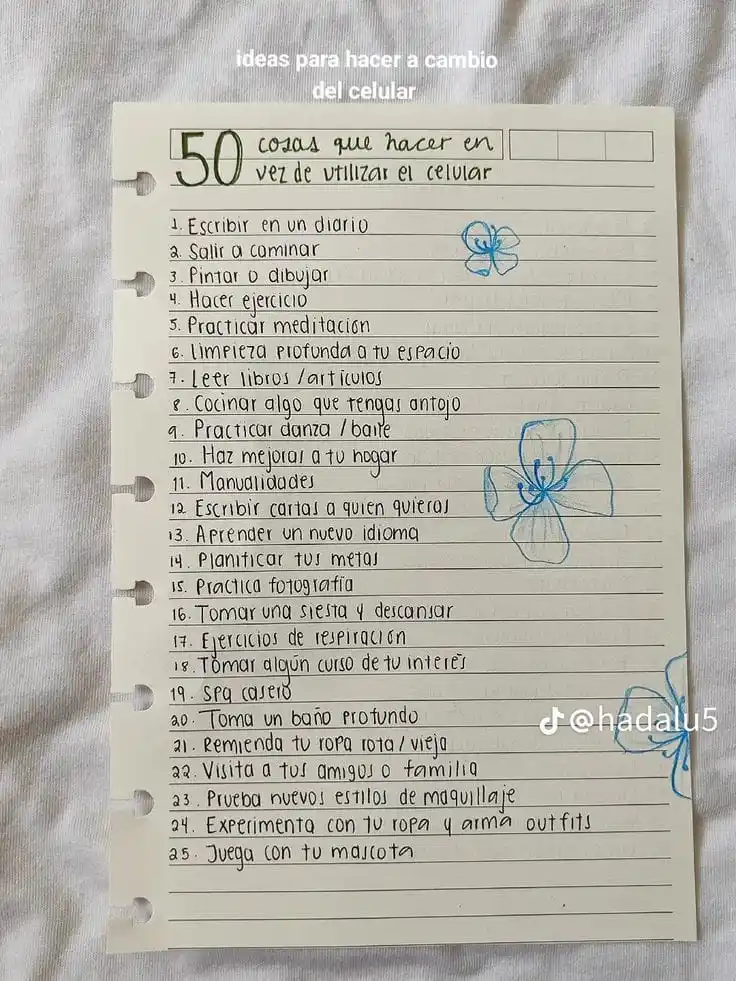 ideas para hacer a cambio
del celular
50 cosas que hacer en
vez de utilizar el celular
1. Escribir en un diario
2. Salir a caminar
3. Pintar o dibujar
4. Hacer ejercicio
5. Practicar meditación
6. limpieza profunda a tu espacio
7. Leer libros / artículos
8. Cocinar algo que tengas antojo
9. Practicar danza / baile
10. Haz mejoras a tu hogar
11. Manualidades
12 Escribir cartas a quien quieras
13. Aprender un nuevo idioma
14. Planificar tus metas
15. Practica fotografía
16. Tomar una siesta y descansar
17. Ejercicios de respiración
18. Tomar algún curso de tu interés
19. Spa casero
20. Toma un baño profundo
21. Remienda tu ropa rota / vieja
22. Visita a tus amigos o familia
23. Prueba nuevos estilos de maquillaje
24. Experimenta con tu ropa y arma outfits
25. Juega con tu mascota
@hadalu5